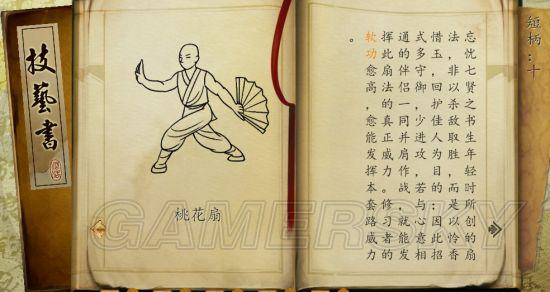 短柄：十
忘忧七贤之书生年轻时所创的扇
法，非以杀敌取胜，而是以怜香
惜玉，回护佳人为目的；因此招
式多守御，少进攻，若与心意相
通的伴侣一同并肩作战，就能发
挥此扇法的真正威力。修习者的
软功愈高，愈能发挥本套路威力
。
桃花扇
技藝書
GAMERSKY